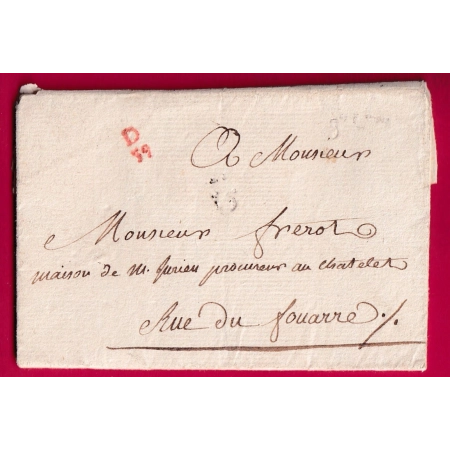 D
59
A Monsieur
Monsieur frerot
maison de m. furien procureur au chatelet
Rue du fouarre ./.